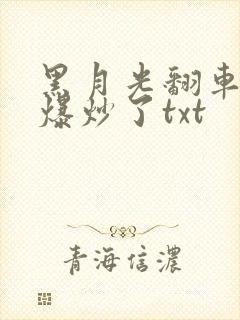 黑月光翻車
爆炒了txt
青海信濃